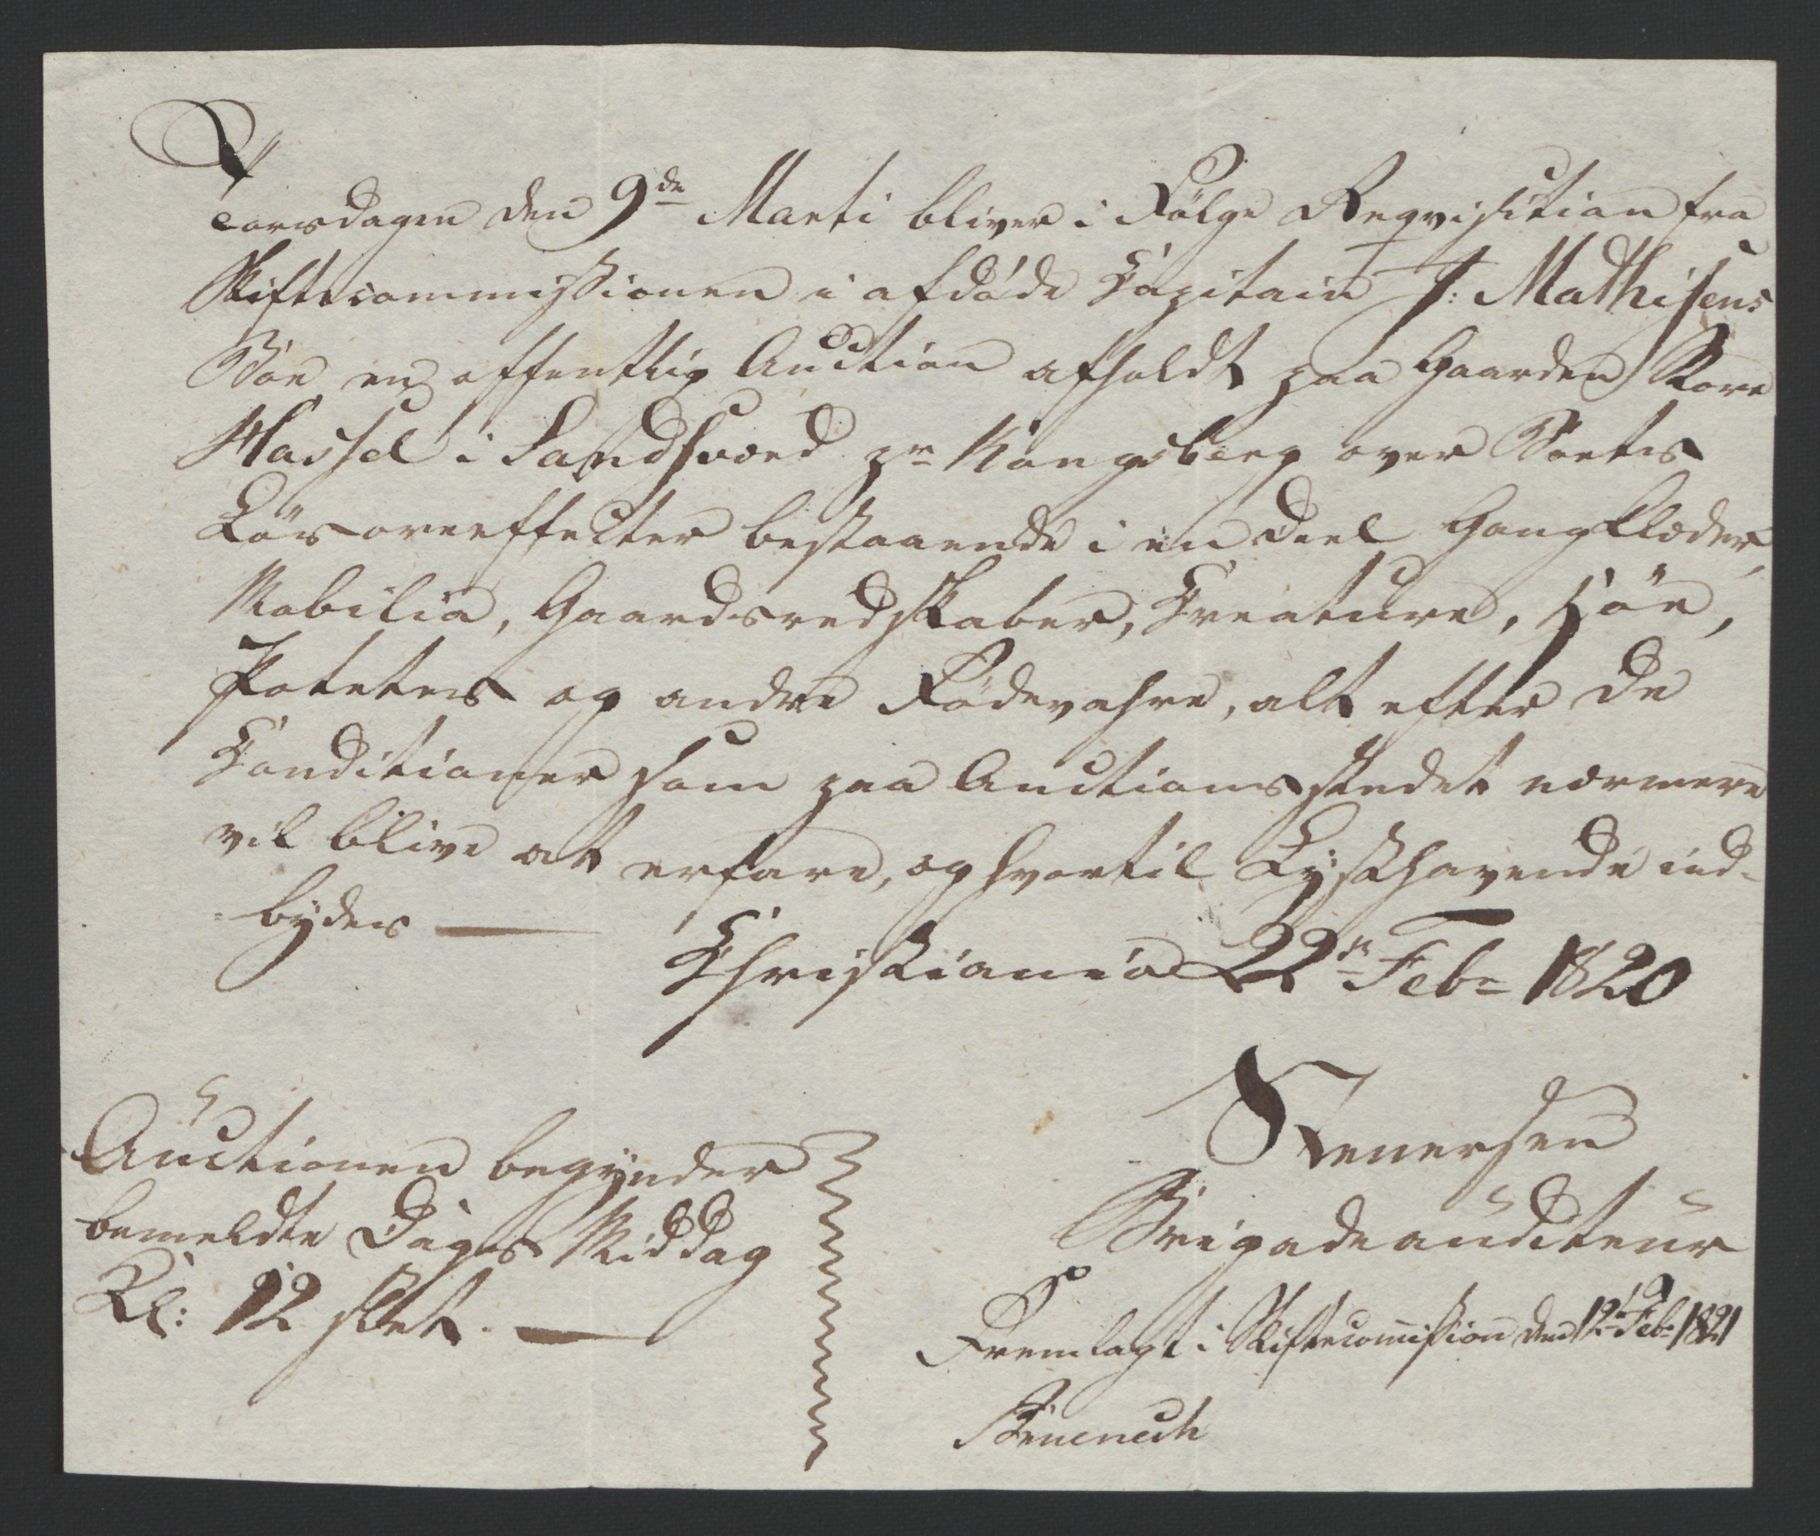 Torsdagen den 9de Marti bliver i Følge Reqvisition fra
Skiftecommissionen i afdøde Capitain J: Mathisens
Boe en offentlig Auction afholdt paa Gaarden Kore
Hassel i Sandsværd pr Kongsberg over Boets
Løsöreeffecter bestaaende i en Deel Gangklæder,
Mobilia, Gaardsredskaber, Creature, Höe,
Poteter og andre Födevahre, alt efter de
Conditioner som paa Auctionsstedet nærmere
vil blive at erfare, og hvortil Lysthavende ind-
bydes —
Christiania 22de Febr 1820
Auctionen begynder
bemeldte Dags Middag
Kl: 12 slet. —
Brigadeauditeur
Fremlagt i Skiftecommission den 12te Febr 1821